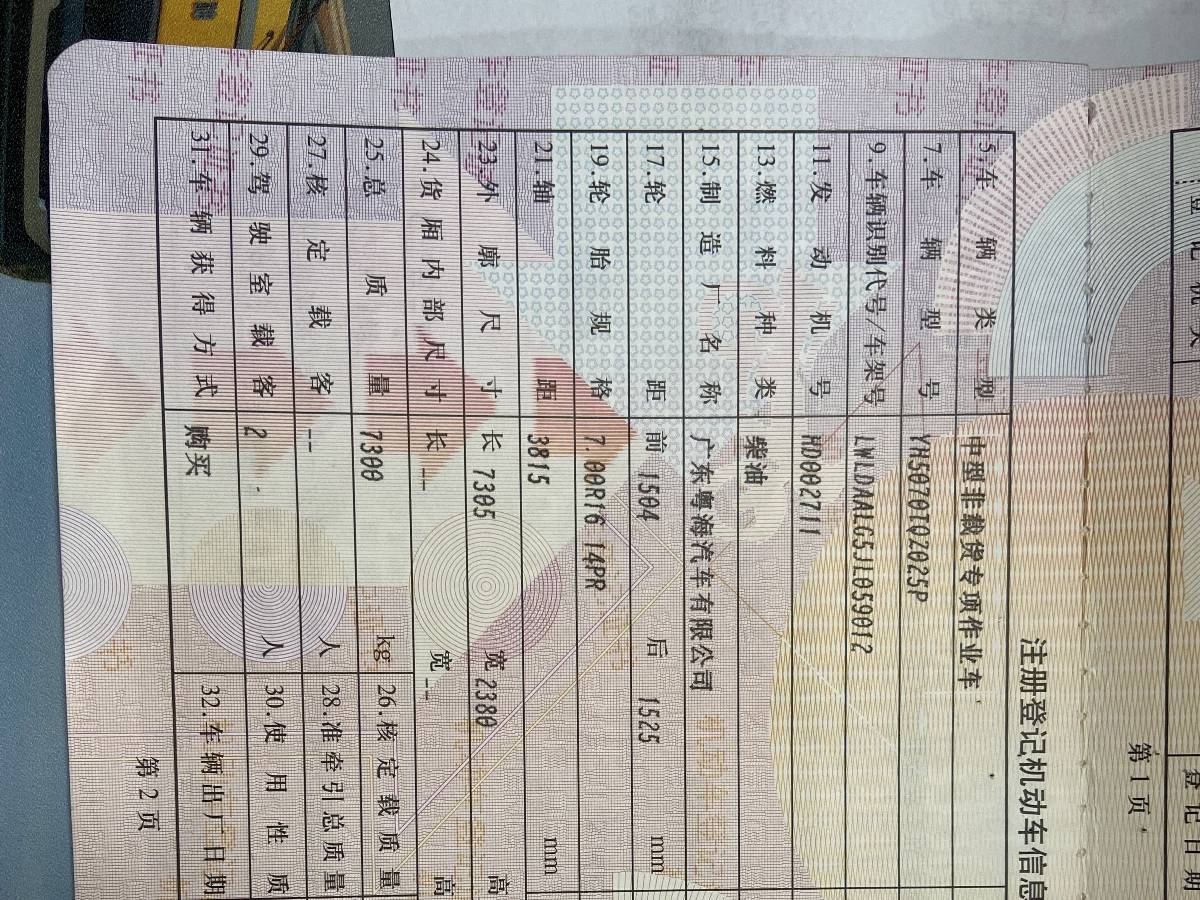 登记机关
登记日期
第1页
注册登记机动车信息
5.车辆类型 中型非载货专项作业车
7.车辆型号 YH5070TQZ025P
9.车辆识别代号/车架号 LWLDAALG5JL059012
11.发动机号 HD002711
13.燃料种类 柴油
15.制造厂名称 广东粤海汽车有限公司
17.轮距 前 1504 后 1525 mm
19.轮胎规格 7.00R16 14PR
21.轴距 3815 mm
23.外廓尺寸 长 7305 宽 2380 高
24.货厢内部尺寸 长 -- 宽 -- 高
25.总质量 7300 kg 26.核定载质量
27.核定载客 -- 人 28.准牵引总质量
29.驾驶室载客 2 人 30.使用性质
31.车辆获得方式 购买 32.车辆出厂日期
第2页